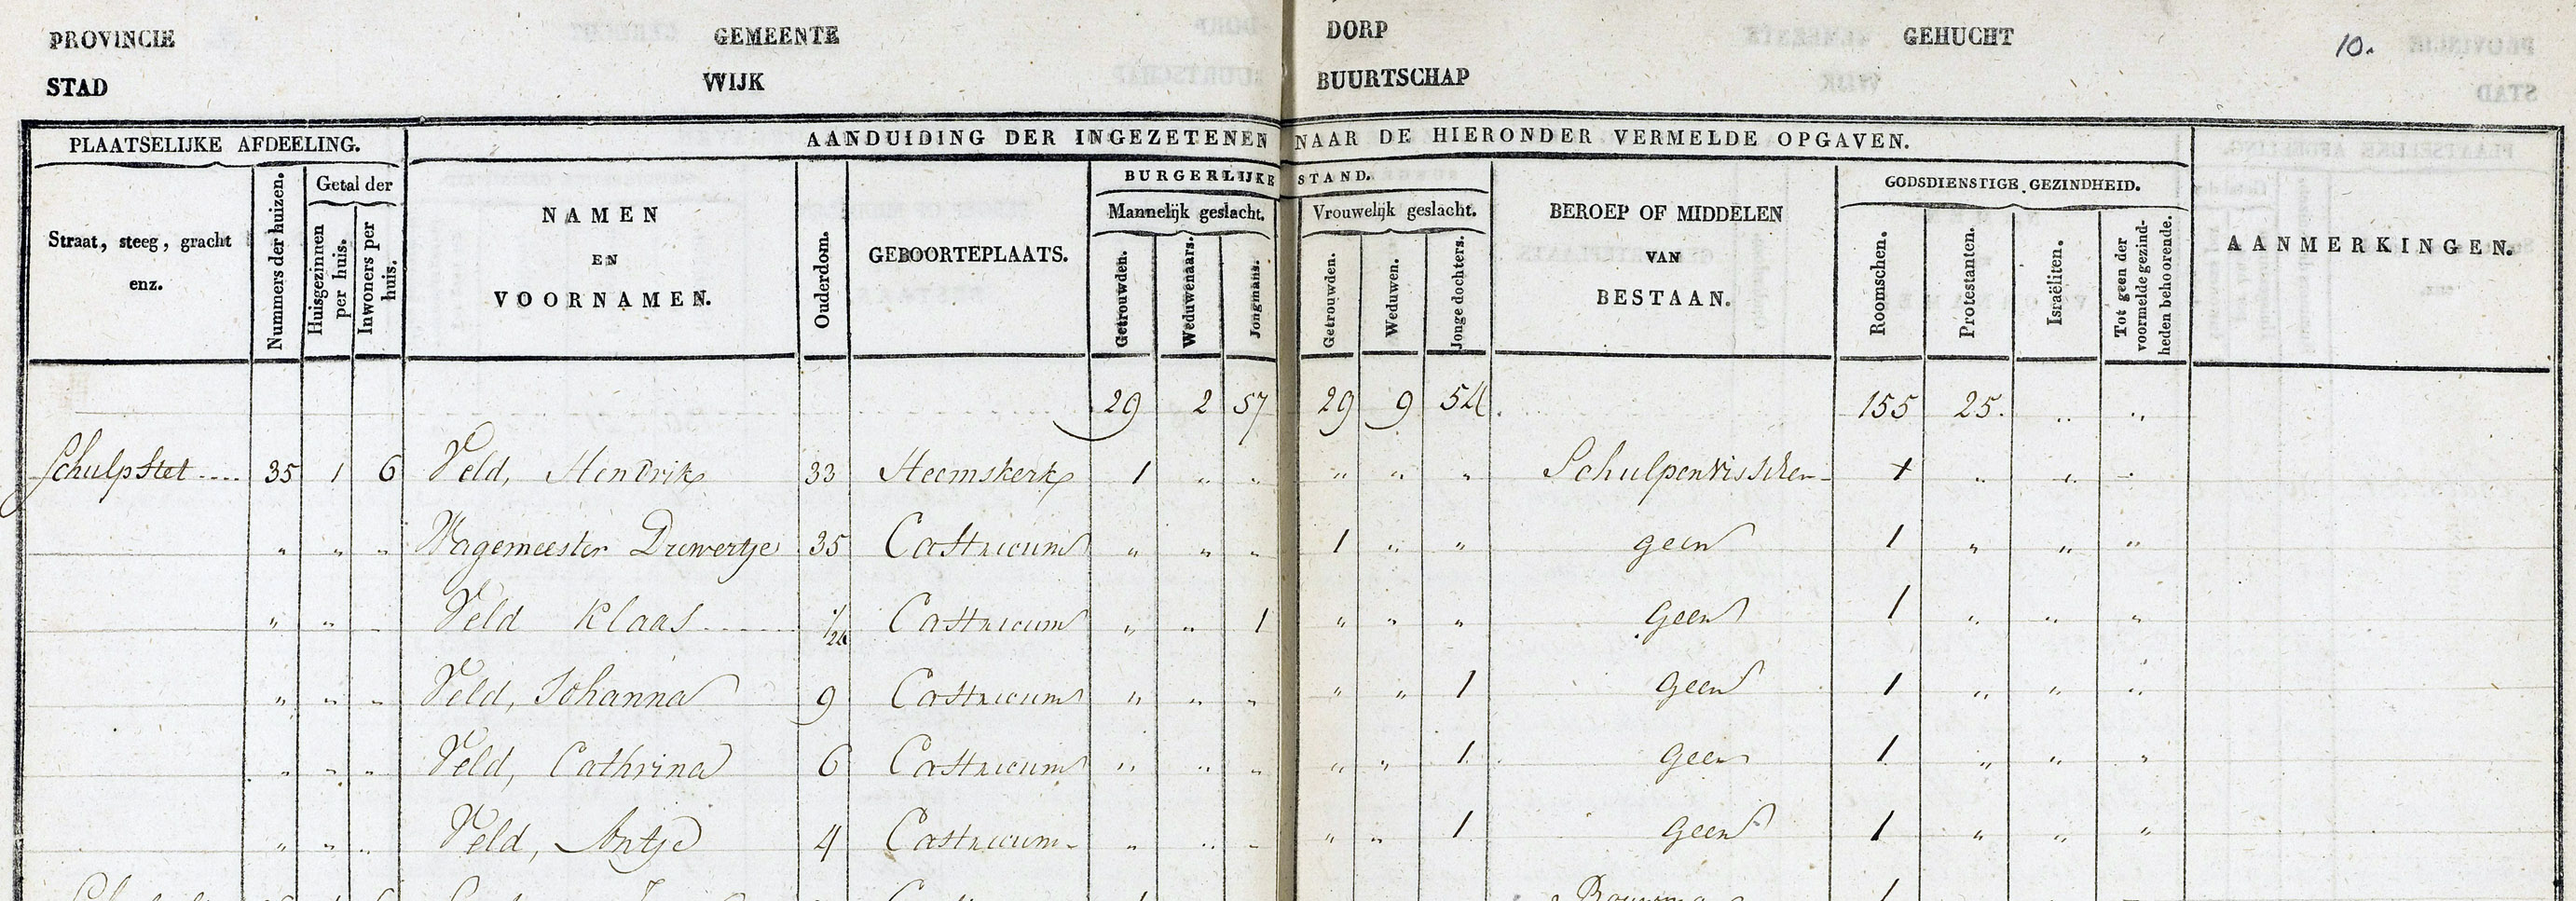 PROVINCIE GEMEENTE DORP GEHUCHT 10.
STAD WIJK BUURTSCHAP
PLAATSELIJKE AFDEELING. AANDUIDING DER INGEZETENEN NAAR DE HIERONDER VERMELDE OPGAVEN. AANMERKINGEN.
Straat, steeg, gracht enz. Nummers der huizen. Getal der Huisgezinnen per huis. Inwoners per huis. NAMEN EN VOORNAMEN. Ouderdom. GEBOORTEPLAATS. BURGERLIJKE STAND. Mannelijk geslacht. Getrouwden. Weduwenaars. Jongmans. Vrouwelijk geslacht. Getrouwden. Weduwen. Jonge dochters. BEROEP OF MIDDELEN VAN BESTAAN. GODSDIENSTIGE GEZINDHEID. Roomschen. Protestanten. Israëliten. Tot geen der voormelde gezindheden behoorende.
29 2 57 29 9 54. 155 25. " "
Schulpstet .... 35 1 6 Veld, Hendrik 33 Heemskerk 1 " " " " " Schulpenvisscher 1 " " "
" " " Wagemeester Dieuwertje 35 Castricum " " " 1 " " geen 1 " " "
" " " Veld Klaas 1/24 Castricum " " 1 " " " Geen 1 " " "
" " " Veld, Johanna 9 Castricum " " " " " 1 Geen 1 " " "
" " " Veld, Cathrina 6 Castricum " " " " " 1 Geen 1 " " "
" " " Veld, Antje 4 Castricum " " " " " 1 Geen 1 " " "